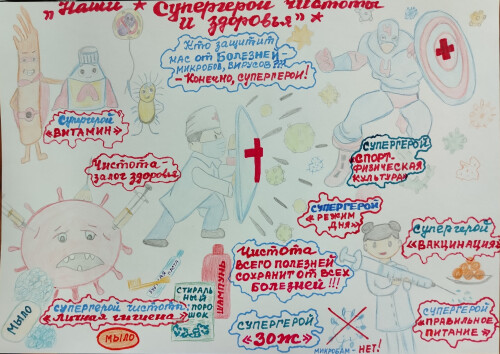 „Наши Супергерои чистоты
и здоровья"
Кто защитит
нас от болезней –
микробов, вирусов???
– Конечно, супергерои!
Супергерой
«Витамин»
Чистота –
залог здоровья
Супергерой
«Спорт –
физическая
культура»
Супергерой
«Режим
дня»
Супергерой
«Вакцинация»
Чистота
всего полезней
сохранит от всех
болезней!!!
Шампунь
Стираль
ный
порошок
Мыло
Супергерой чистоты
«Личная гигиена»
Мыло
Супергерой
«ЗОЖ»
Микробам – НЕТ!
Супергерой
«Правильное
питание»